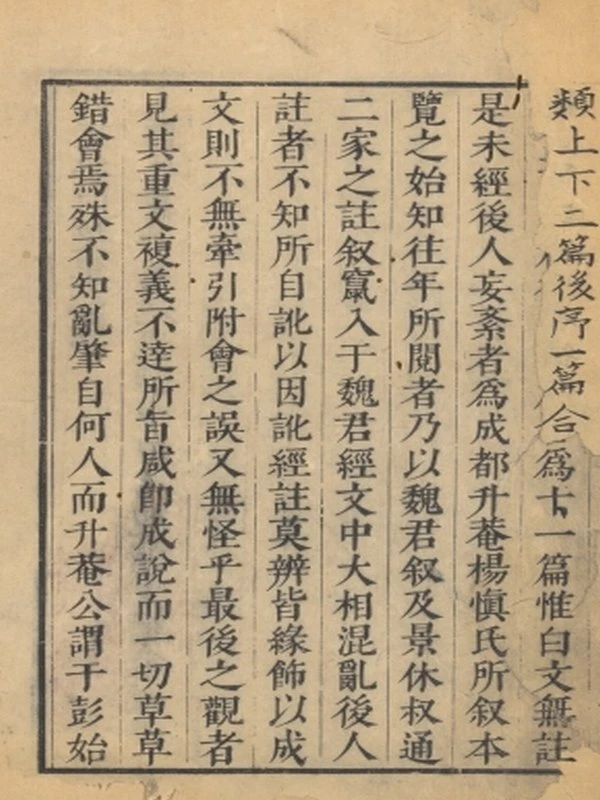 類上下二篇後序一篇合爲十一篇惟白文無註
是未經後人妄紊者爲成都升菴楊愼氏所叙本
覽之始知往年所閱者乃以魏君叙及景休叔通
二家之註叙竄入于魏君經文中大相混亂後人
註者不知所自訛以因訛經註莫辨皆緣飾以成
文則不無牽引附會之誤又無怪乎最後之觀者
見其重文複義不達所旨咸卽成說而一切草草
錯會焉殊不知亂肇自何人而升菴公謂于彭始